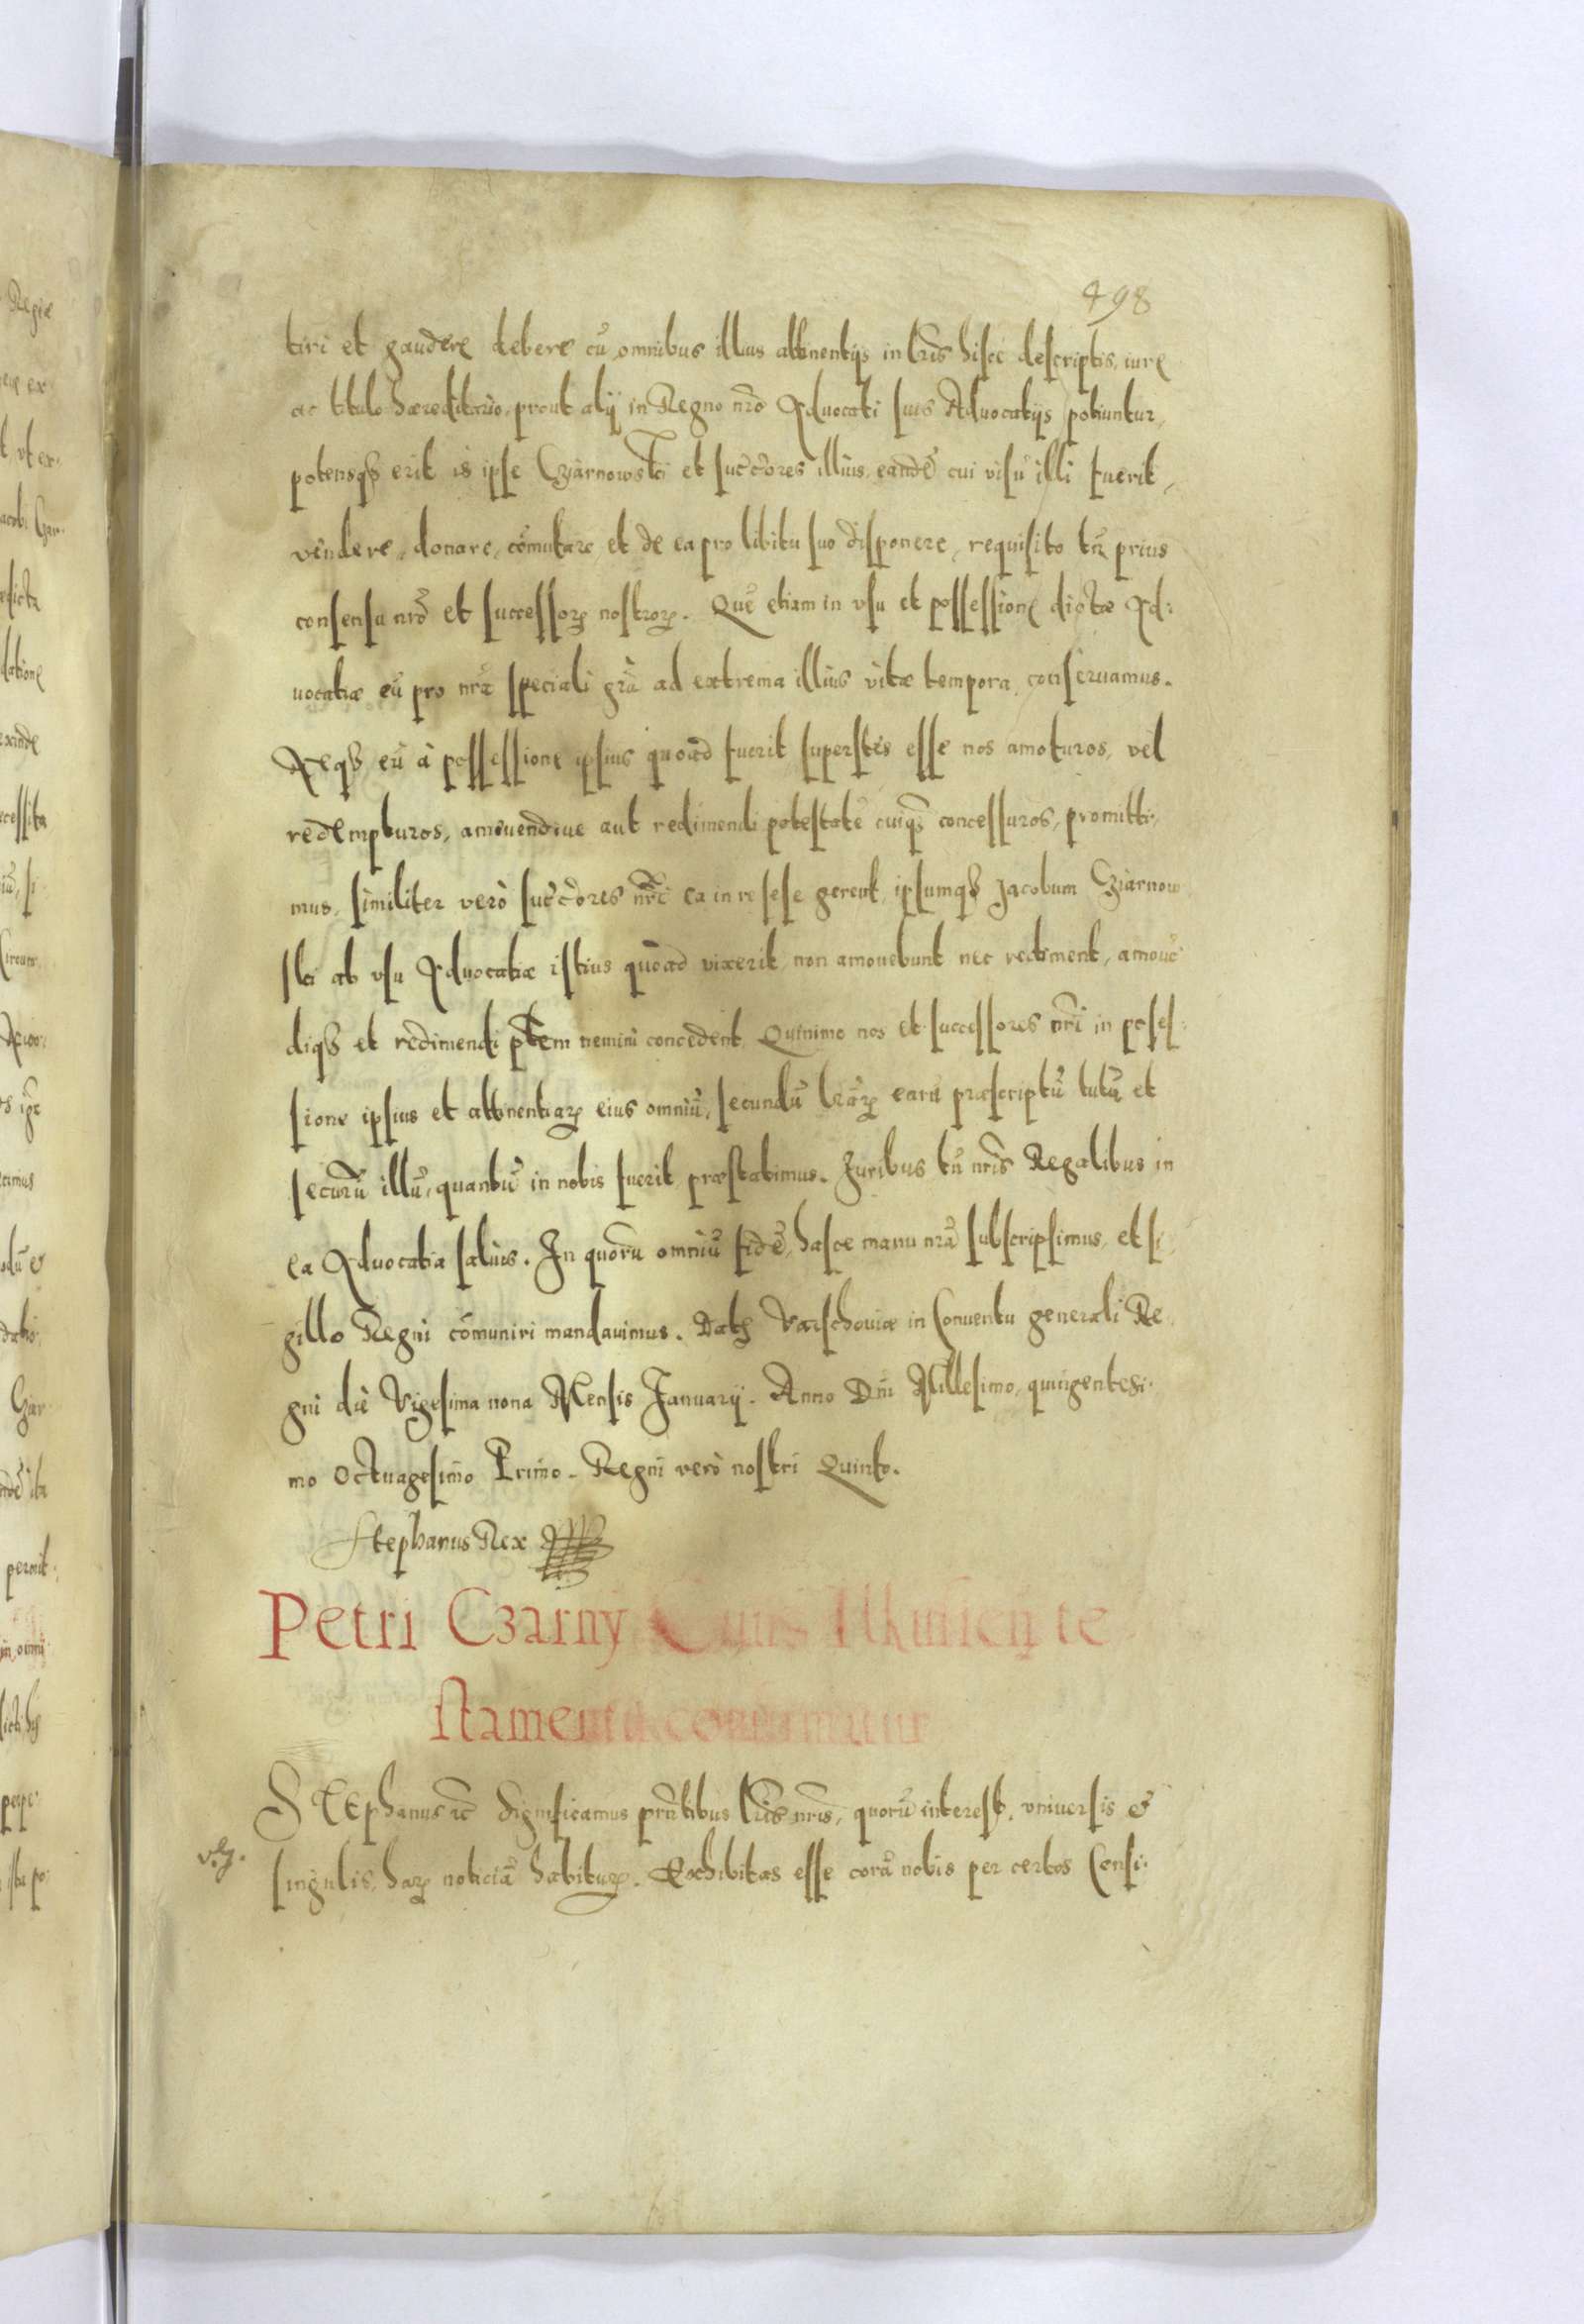 498
tiri et gaudere debere cū omnibus illius attinentijs in lr̃is hisce descriptis, iure
ac titulo hæreditario, prout alij in Regno nr̃o Aduocati suis Aduocatijs potiuntur,
potensq₃ erit is ipse Czarnowski et succ̃ores illius, eandē cui visū illi fuerit,
vendere, donare, cōmutare, et de ea pro libitu suo disponere, requisito tn̄ prius
consensu nr̃o et successoꝝ nostroꝝ. Quē etiam in vsu et possessione dictæ Ad:
uocatiæ eū pro nr̃a speciali gr̃a ad extrema illius vitæ tempora conseruamus.
Neq₃ eū à possessione ipsius quoad fuerit superstes esse nos amoturos, vel
redempturos, amouendiue aut redimendi potestatē cuiq₃ concessuros, promitti:
mus, similiter verò succ̃ores nr̃i ea in re sese gerent, ipsumq₃ Jacobum Czarnow
ski ab vsu Aduocatiæ istius quoad vixerit non amouebunt nec rediment, amouē
diq₃ et redimendi ptẽm nemini concedent. Quinimo nos et successores nr̃i in poses:
sione ipsius et attinentiaꝝ eius omniū, secundū lr̃aꝝ earū præscriptū tutū et
securū illū, quantū in nobis fuerit præstabimus. Juribus tn̄ nr̃is Regalibus in
ea Aduocatia saluis. In quorū omniū fidē, hasce manu nr̃a subscripsimus, et si:
gillo Regni cōmuniri mandauimus. Datꝭ Varschouiæ in Conuentu generali Re
gni die Vigesima nona Mensis Januarij. Anno Dñi Millesimo, quingentesi:
mo Octuagesimo Primo. Regni verò nostri Quinto.
Stephanus Rex
Petri Czarny Ciuis Ilkusien̄ te
stamentū confirmatur
Stephanus ꝛc̃ Significamus pñtibus lr̃is nr̃is, quorū interest, vniuersis &
singulis, haꝝ noticiā habituꝝ. Exhibitas esse corā nobis per certos Consi: